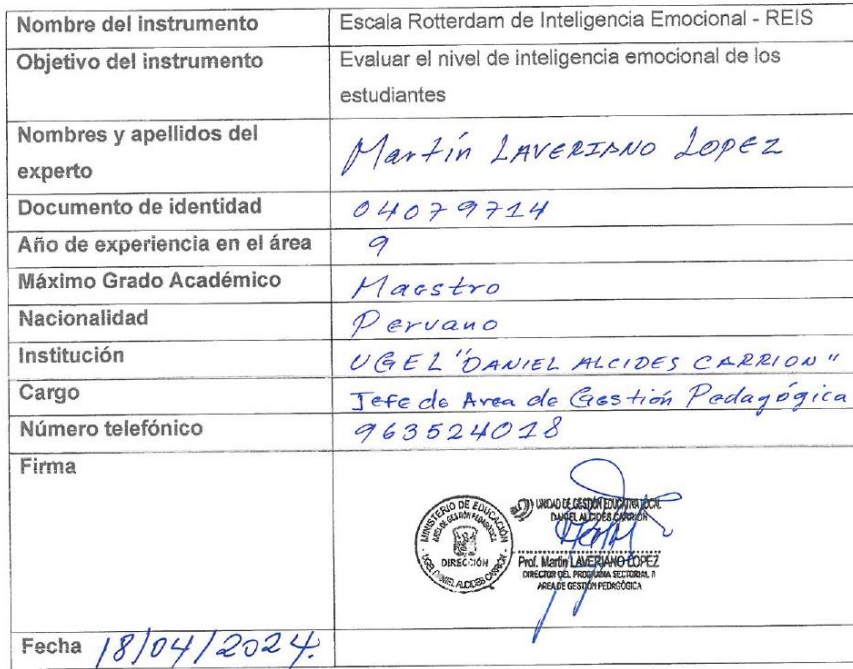 Nombre del instrumento Escala Rotterdam de Inteligencia Emocional - REIS
Objetivo del instrumento Evaluar el nivel de inteligencia emocional de los
estudiantes
Nombres y apellidos del
experto Martín LAVERIANO LOPEZ
Documento de identidad 04079714
Año de experiencia en el área 9
Máximo Grado Académico Maestro
Nacionalidad Peruano
Institución UGEL "DANIEL ALCIDES CARRION"
Cargo Jefe de Area de Gestión Pedagógica
Número telefónico 963524018
Firma
MINISTERIO DE EDUCACIÓN
AREA DE GESTIÓN PEDAGÓGICA
DIRECCIÓN
UGEL DANIEL ALCIDES CARRIÓN
UNIDAD DE GESTIÓN EDUCATIVA LOCAL
DANIEL ALCIDES CARRIÓN
Prof. Martin LAVERIANO LOPEZ
DIRECTOR DEL PROGRAMA SECTORIAL II
AREA DE GESTIÓN PEDAGÓGICA
Fecha 18/04/2024.